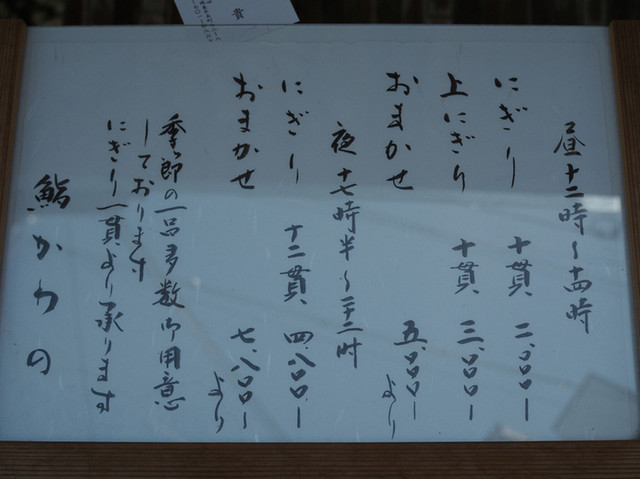 昼 十二時〜十四時
にぎり 十貫 二、〇〇〇ー
上にぎり 十貫 三、〇〇〇ー
おまかせ 五、〇〇〇ーより
夜 十七時半〜二十二時
にぎり 十二貫 四、八〇〇ー
おまかせ 七、八〇〇〜より
季節の一品多数御用意
しております
にぎり一貫より承ります
鮨かわの
賞